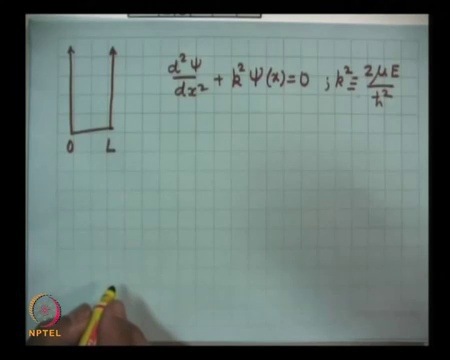 d²Ψ/dx² + k²Ψ(x) = 0 ; k² ≡ 2μE/ħ²
0 L
NPTEL